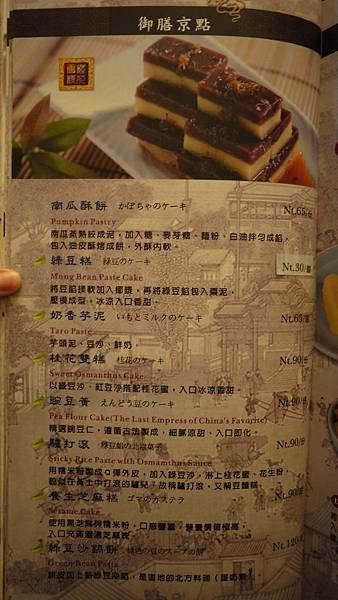 御膳京點
南瓜酥餅 かぼちゃのケーキ Nt.65/份
Pumpkin Pastry
南瓜蒸熟絞成泥，加入糖、麥芽糖、麵粉、白油拌勻成餡，
包入油皮酥烤成餅，外酥內軟。
綠豆糕 緑豆のケーキ Nt.30/個
Mung Bean Paste Cake
將豆餡揉軟加入椰漿，再將綠豆餡包入棗泥，
壓模成型，冰涼入口香甜。
奶香芋泥 いもとミルクのケーキ Nt.65/份
Taro Paste
芋頭泥、豆沙、鮮奶
桂花雙糕 桂花のケーキ Nt.90/份
Sweet Osmanthus Cake
以綠豆沙、紅豆沙搭配桂花蜜，入口冰涼香甜。
豌豆黃 えんどう豆のケーキ Nt.90/份
Pea Flour Cake(The Last Empress of China's Favorite)
精選豌豆仁，遵循古法製成，細膩涼甜、入口即化。
驢打滾 Nt.90/份
Sticky Rice Paste with Osmanthus Sauce
用糯米粉製成Ｑ彈外皮，加入綠豆沙，淋上桂花蜜，花生粉，
貌似在黃土中打滾的驢兒，故稱驢打滾，又稱豆麵糕。
養生芝麻糕 ゴマのカステラ Nt.90/份
Sesame Cake
使用黑芝麻與糯米粉，口感豐富，營養價值極高，
入口充滿濃濃芝麻香
綠豆沙鍋餅 Nt.120/份
Green Bean Pasta
餅皮加上新綠豆沙餡，是道地的北方料理（蛋奶素）